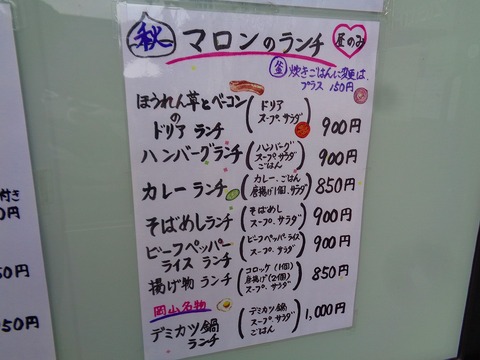 秋 マロンのランチ 昼のみ
釜 炊きごはんに変更は、
プラス 150円
ほうれん草とベーコン
の
ドリア ランチ
ドリア
スープ、サラダ
900円
ハンバーグランチ
ハンバーグ
スープ、サラダ
ごはん
900円
カレー ランチ
カレー、ごはん
唐揚げ1個、サラダ
850円
そばめしランチ
そばめし
スープ、サラダ
900円
ビーフペッパー
ライス ランチ
ビーフペッパーライス
スープ、サラダ
900円
揚げ物 ランチ
コロッケ(1個)
唐揚げ(2個)
スープ、サラダ
850円
岡山名物
デミカツ鍋
ランチ
デミカツ鍋
スープ、サラダ
ごはん
1,000円
付き
0円
50円
950円